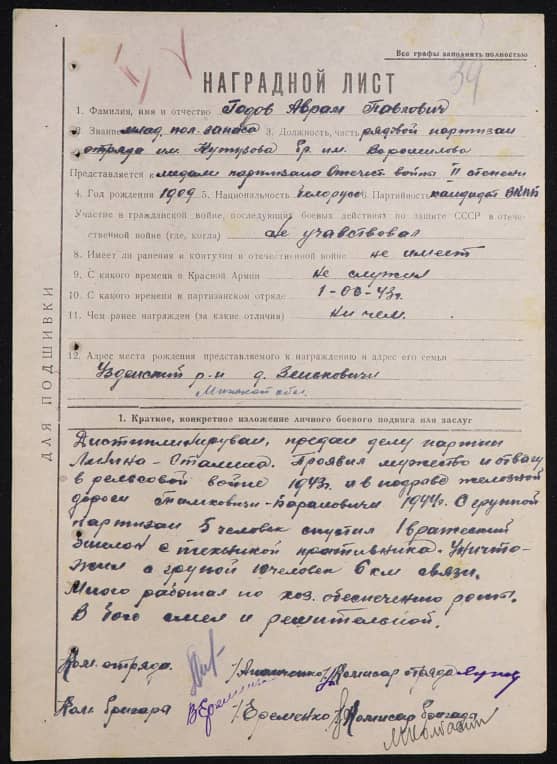 Все графы заполнять полностью
34
НАГРАДНОЙ ЛИСТ
1. Фамилия, имя и отчество Годов Аврам Павлович
2. Звание млад. пол. запаса 3. Должность, часть рядовой партизан
отряда им. Кутузова бр. им. Ворошилова
Представляется к медали партизана Отечест. войны II степени
4. Год рождения 1909 5. Национальность белорус 6. Партийность кандидат ВКПб
Участие в гражданской войне, последующих боевых действиях по защите СССР в отече-
ственной войне (где, когда) не учавствовал
8. Имеет ли ранения и контузии в отечественной войне не имеет
9. С какого времени в Красной Армии не служил
10. С какого времени в партизанском отряде 1-06-43г.
11. Чем ранее награжден (за какие отличия) ни чем.
12. Адрес места рождения представляемого к награждению и адрес его семьи
Узденский р-н д.
Минской обл.
ДЛЯ ПОДШИВКИ
1. Краткое, конкретное изложение личного боевого подвига или заслуг
Дистиплинируван, предан делу партии
Ленина-Сталина. Проявил мужество и отвагу
в рельсовой войне 1943г. и в подрыве железной
дороги Тимковичи-Барановичи 1944г. С группой
партизан 5 человек спустил 1 вражеский
эшалон с техникой противника. Уничто-
жил с групой 10 человек 6 км связи.
Много работал по хоз. обеспечению
В бою смел и решительной.
Ком. отряда. /Апанченко/ Комисар отряда
Ком бригады /Еременко/ Комисар бригады